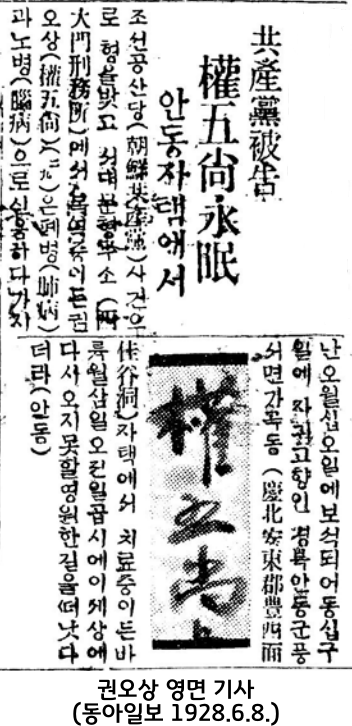 共產黨被告
權五尙永眠
안동자택에서
조선공산당(朝鮮共產黨)사건으
로 형을밧고 서대문형무소(西
大門刑務所)에서복역중이든권
오상(權五尙)은폐병(肺病)
과노병(腦病)으로신음하다가지
난오월십오일에보석되어동십구
일에 자긔고향인 경북안동군풍
서면가곡동 (慶北安東郡豊西面
佳谷洞)자택에서 치료중이든바
륙월삼일오전일곱시에이세상에
다시오지못할영원한길을떠낫다
더라(안동)
權五尙
권오상 영면 기사
(동아일보 1928.6.8.)